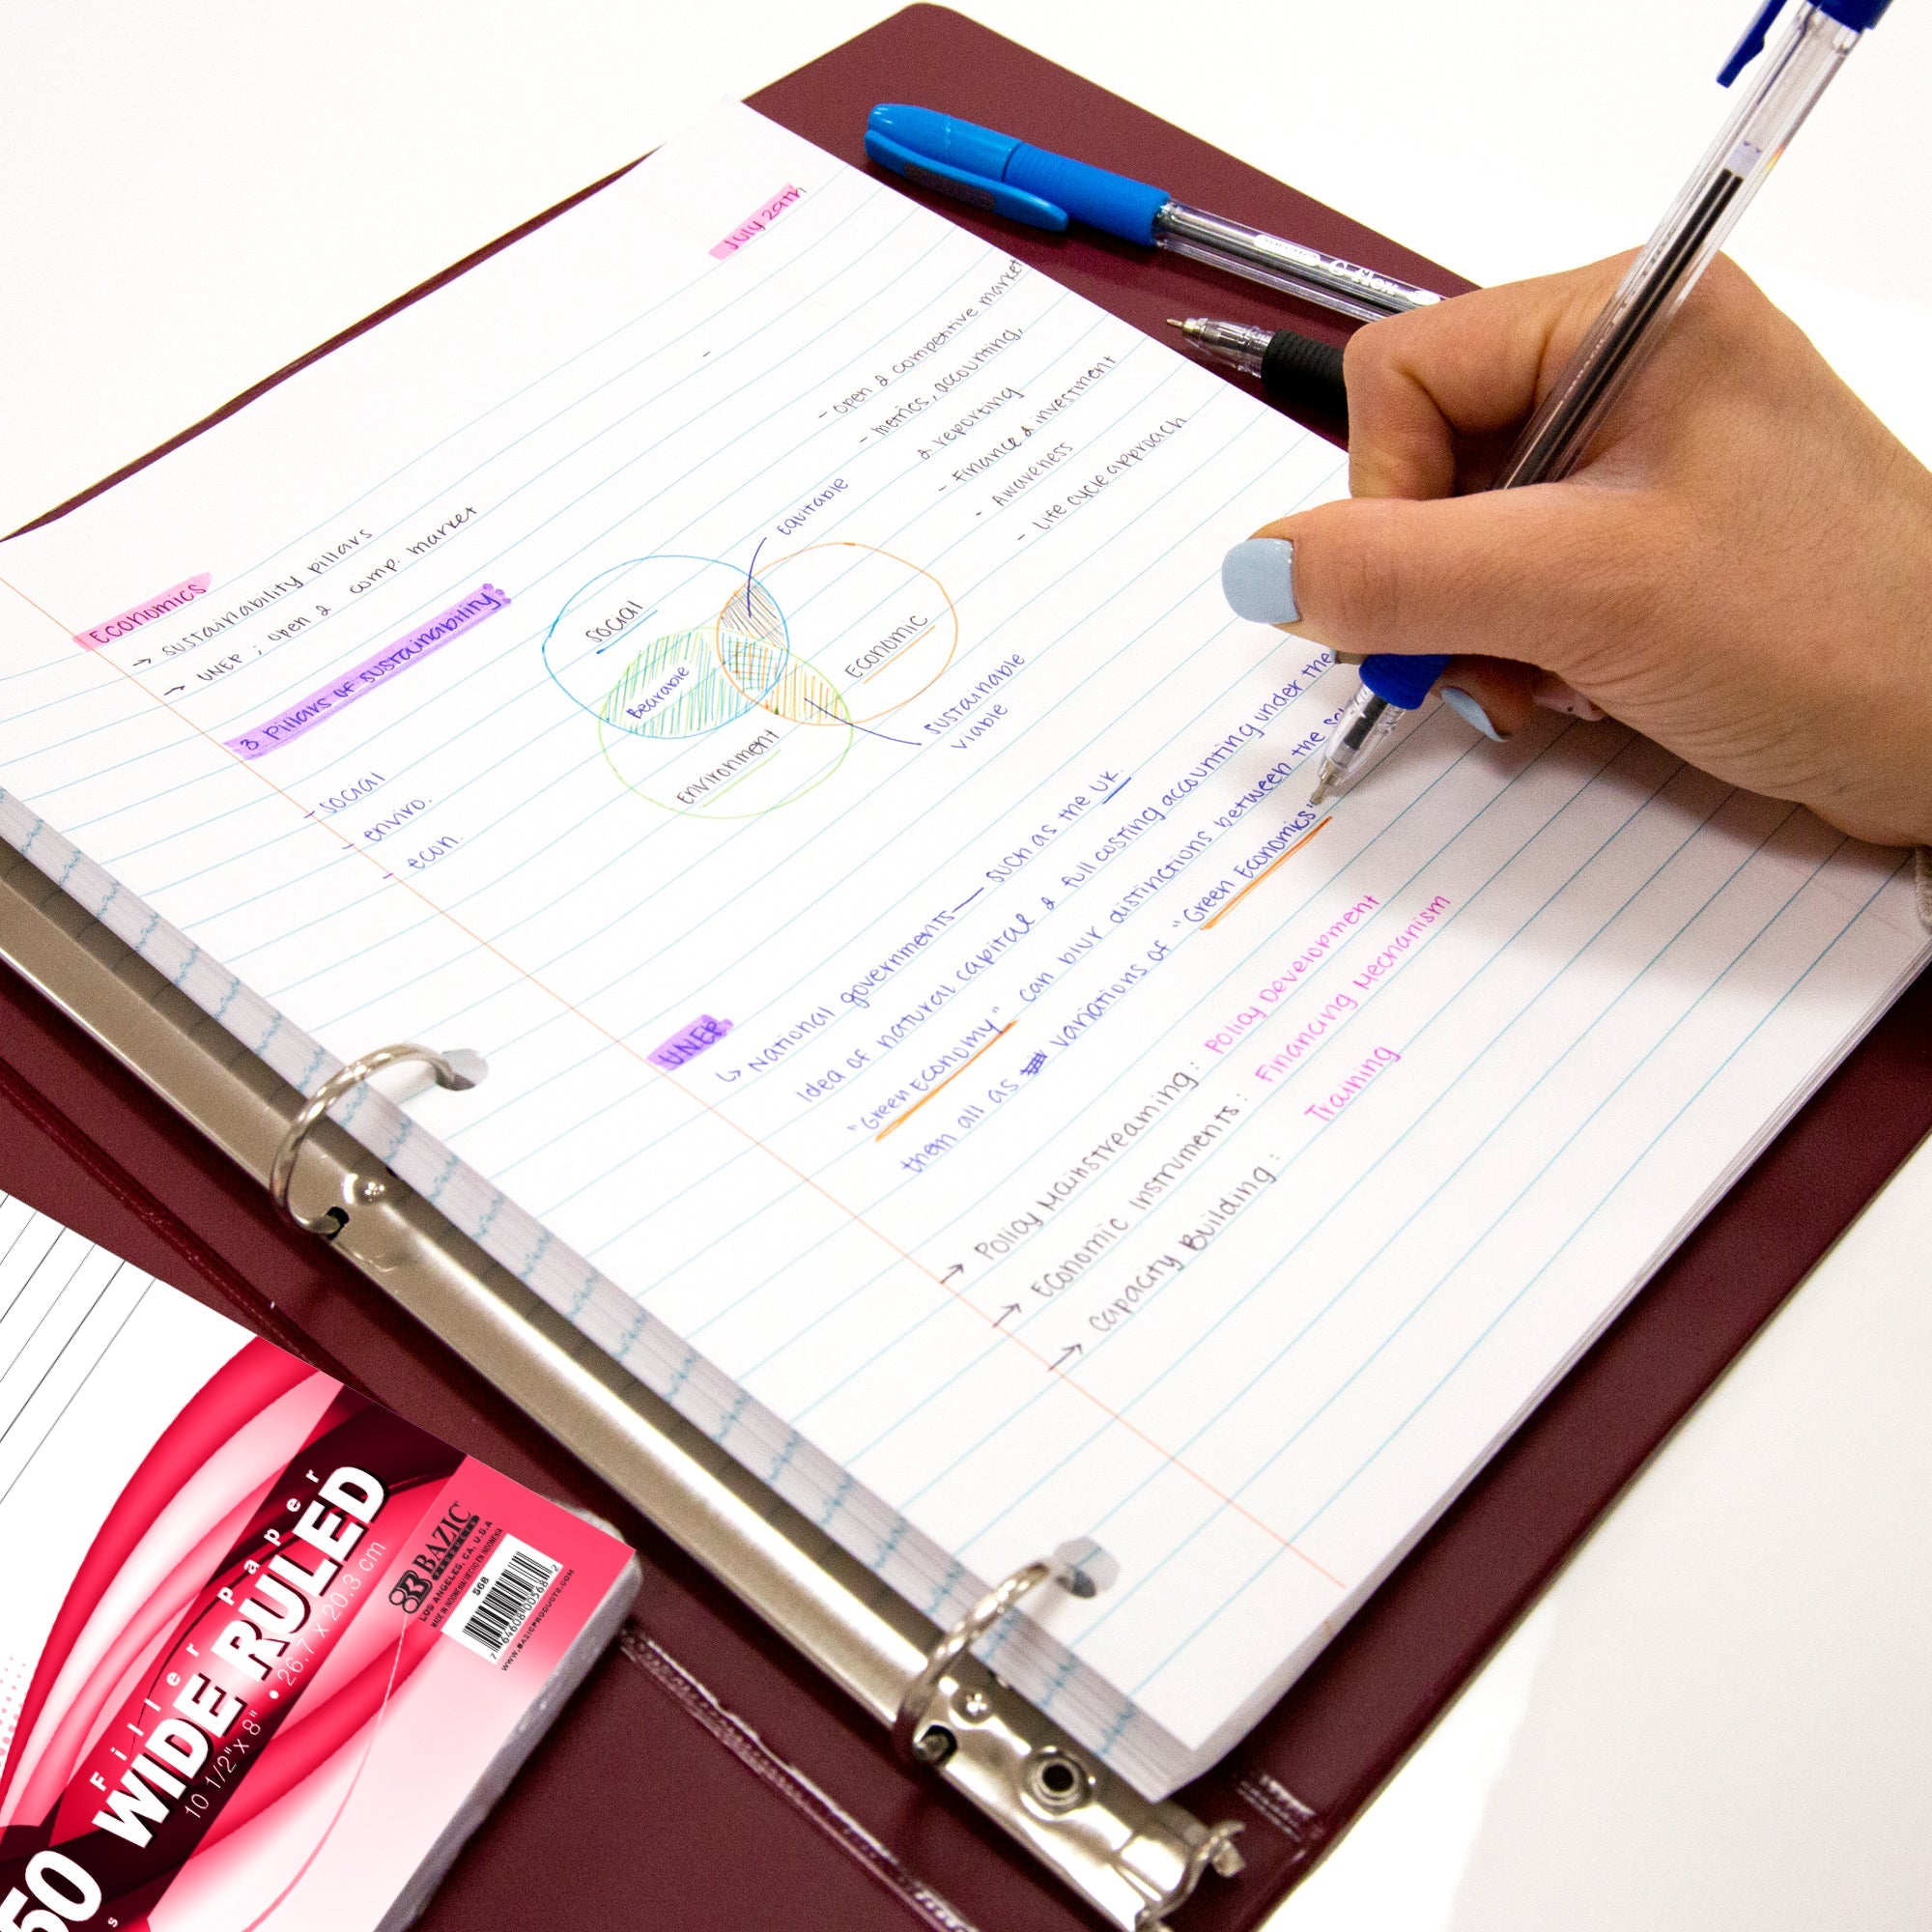 July 29th
Economics
→ sustainability pillars
→ UNEP ; open & comp. market
3 Pillars of sustainability
- social
- enviro.
- econ.
social
Economic
Bearable
Environment
Equitable
sustainable
viable
- open & competitive market
- metrics, accounting,
& reporting
- Finance & investment
- Awareness
- Life cycle approach
UNEP
↳ National governments — such as the UK.
Idea of natural capital & full costing accounting under the
"Green Economy" can blur distinctions between the
them all as variations of "Green Economics"
→ Policy Mainstreaming : Policy Development
→ Economic Instruments : Financing Mechanism
→ Capacity Building : Training
Filler Paper
WIDE RULED
10 1/2" x 8" • 26.7 x 20.3 cm
BAZIC
PRODUCTS
LOS ANGELES, CA, U.S.A
MADE IN INDONESIA/HECHO EN INDONESIA
568
7 64608 00568 2
WWW.BAZICPRODUCTS.COM
50